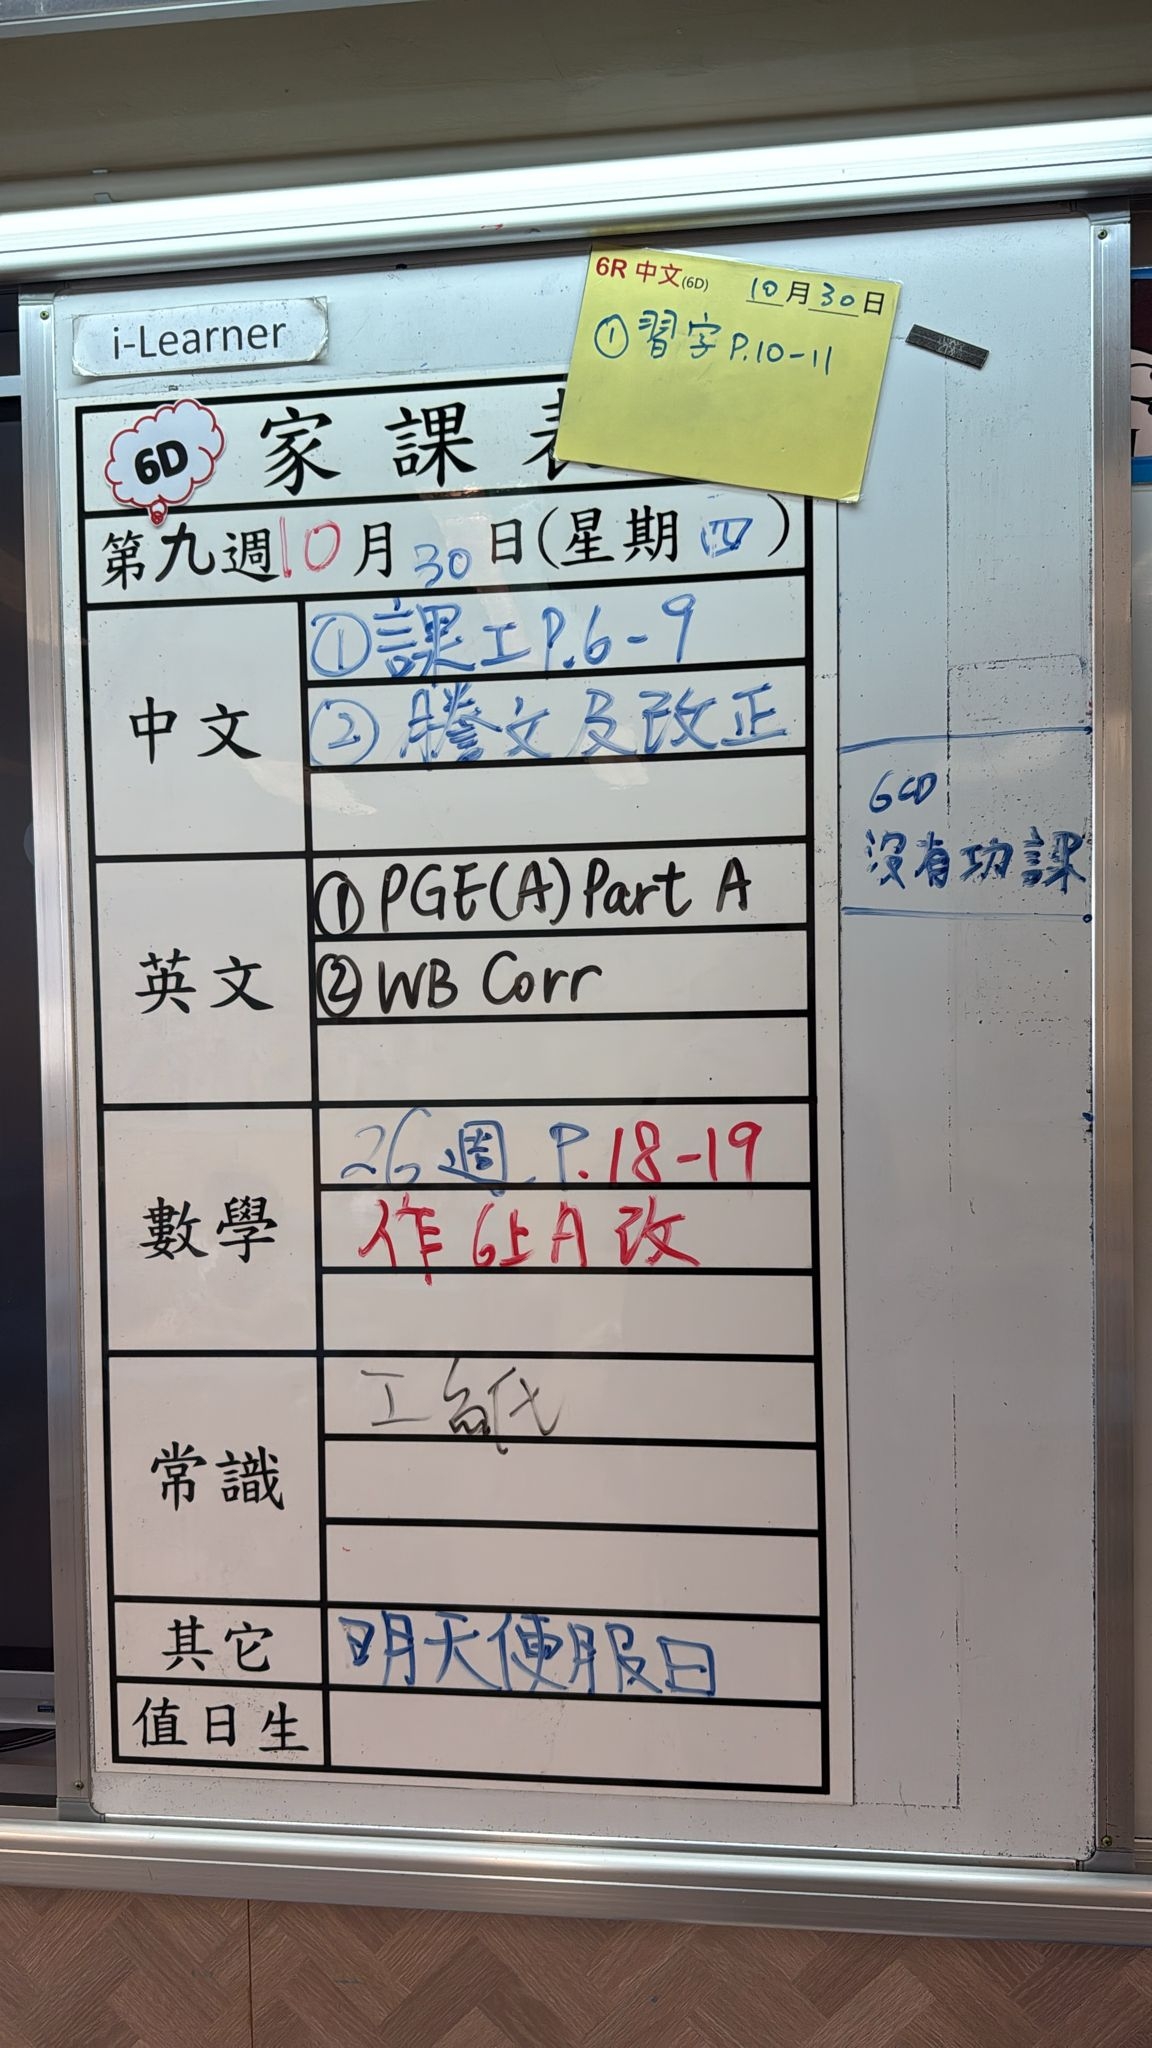 i-Learner
6R 中文(6D) 10月30日
① 習字 P.10-11
6D 家課表
第九週10月30日(星期四)
中文
①課工P.6-9
②謄文及改正
6CD
沒有功課
英文
① PGE(A) Part A
② WB Corr
數學
26週 P.18-19
作6上A改
常識
工紙
其它
明天便服日
值日生